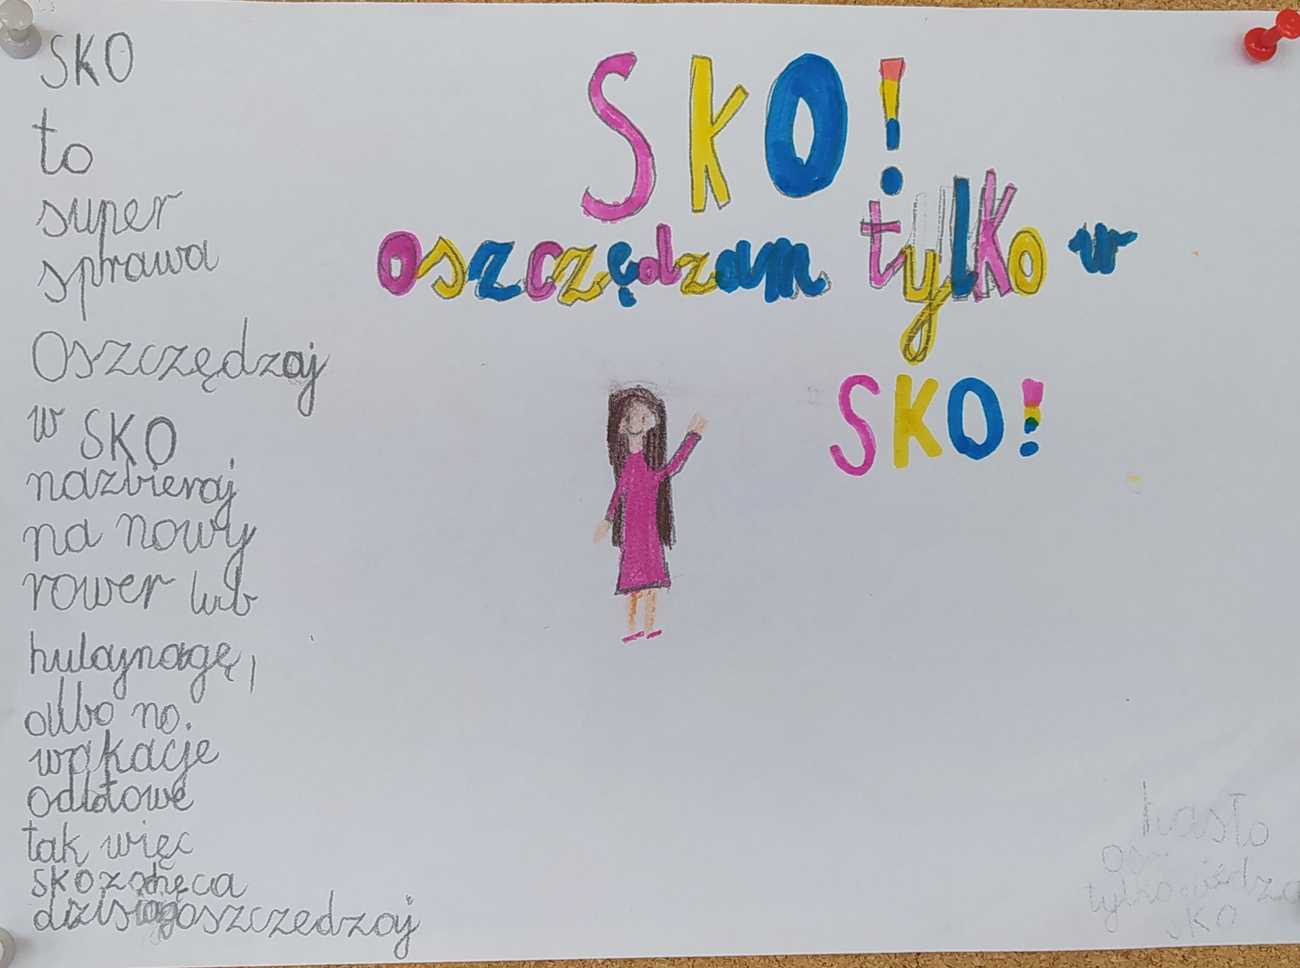 SKO
to
super
sprawa
Oszczędzaj
w SKO
nazbieraj
na nowy
rower lub
hulajnogę,
albo na
wakacje
odlotowe
tak więc
SKO zachęca
dzisiaj oszczedzaj
SKO!
oszczędzam tylko w
SKO!
hasło
tylko
SKO